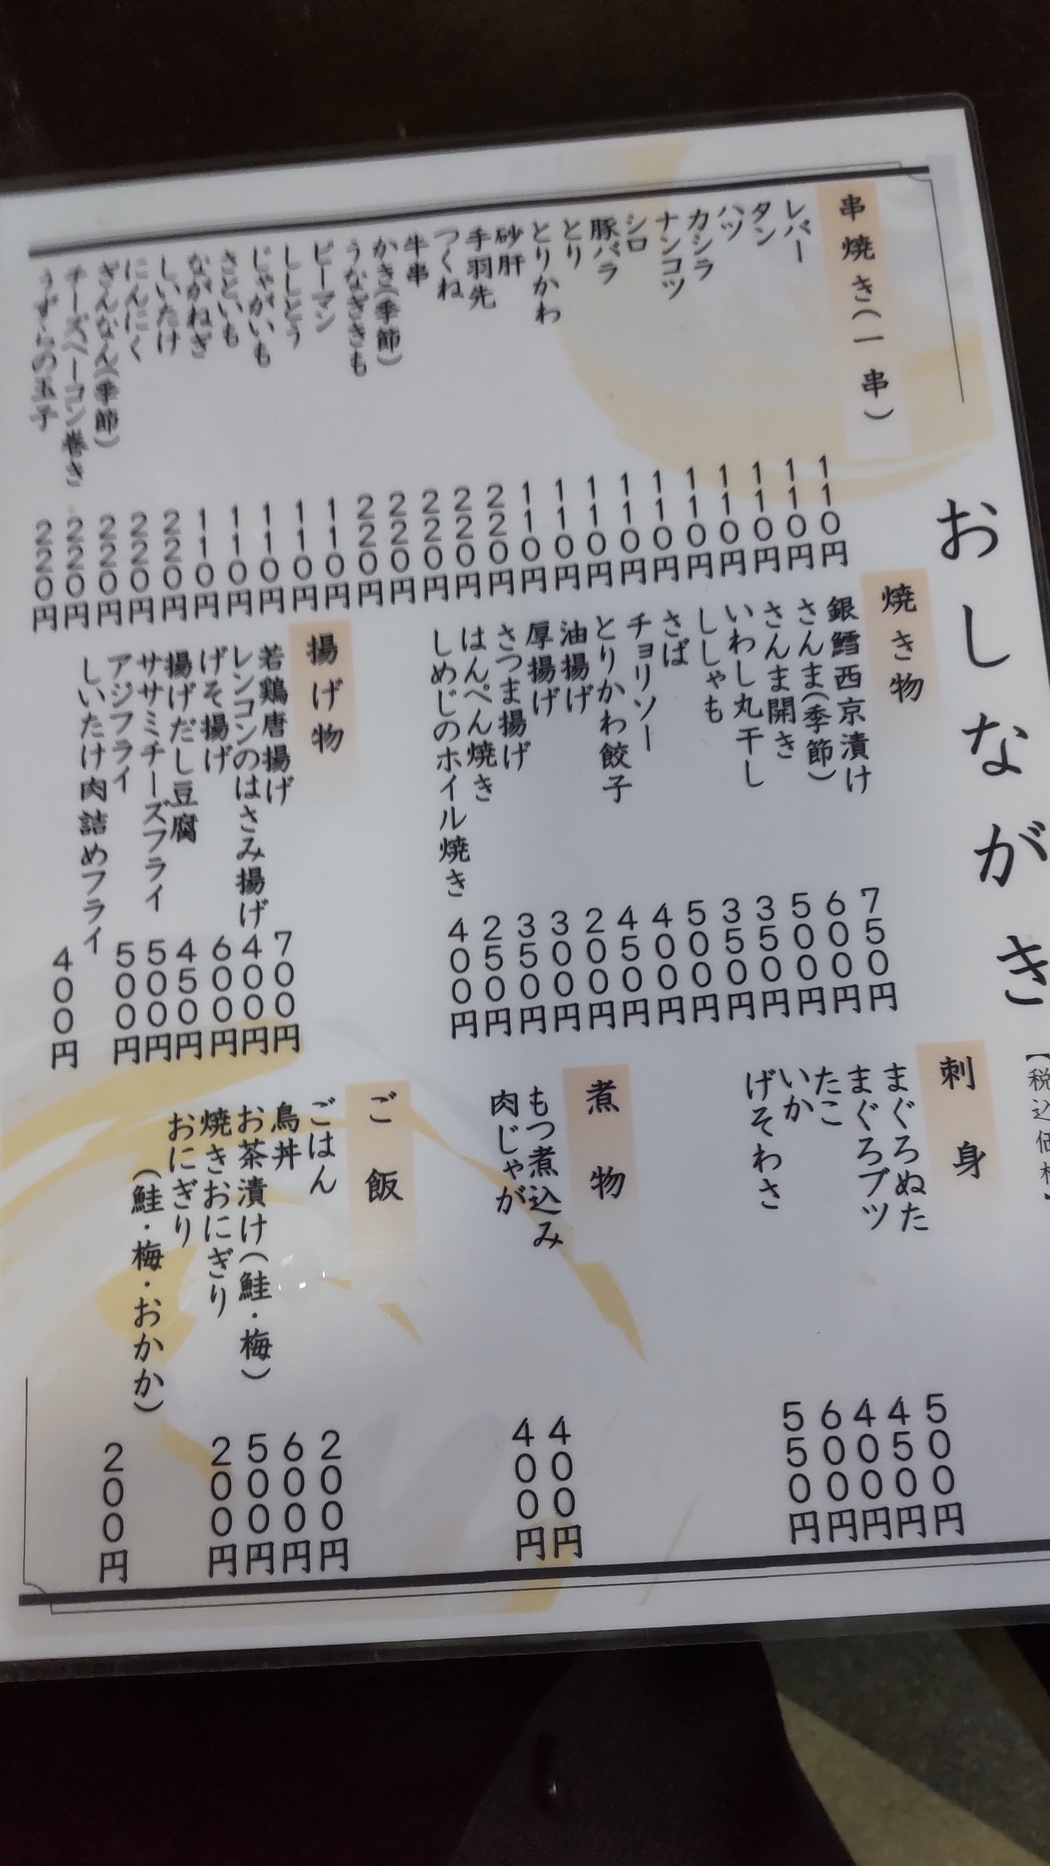 おしながき
【税込価格】
串焼き(一串)
レバー 110円
タン 110円
ハツ 110円
カシラ 110円
ナンコツ 110円
シロ 110円
豚バラ 110円
とり 110円
とりかわ 110円
砂肝 110円
手羽先 220円
つくね 220円
牛串 220円
かき(季節) 220円
うなぎきも 220円
ピーマン 110円
ししとう 110円
じゃがいも 110円
さといも 110円
ながねぎ 110円
しいたけ 220円
にんにく 220円
ぎんなん(季節) 220円
チーズベーコン巻き 220円
うずらの玉子 220円
焼き物
銀鱈西京漬け 750円
さんま(季節) 600円
さんま開き 500円
いわし丸干し 350円
ししゃも 350円
さば 500円
チョリソー 400円
とりかわ餃子 450円
油揚げ 200円
厚揚げ 300円
さつま揚げ 350円
はんぺん焼き 250円
しめじのホイル焼き 400円
揚げ物
若鶏唐揚げ 700円
レンコンのはさみ揚げ 400円
げそ揚げ 600円
揚げだし豆腐 450円
ササミチーズフライ 500円
アジフライ 500円
しいたけ肉詰めフライ 400円
刺身
まぐろぬた 500円
まぐろブツ 450円
たこ 400円
いか 600円
げそわさ 550円
煮物
もつ煮込み 400円
肉じゃが 400円
ご飯
ごはん 200円
鳥丼 600円
お茶漬け(鮭・梅) 500円
焼きおにぎり 200円
おにぎり
(鮭・梅・おかか) 200円